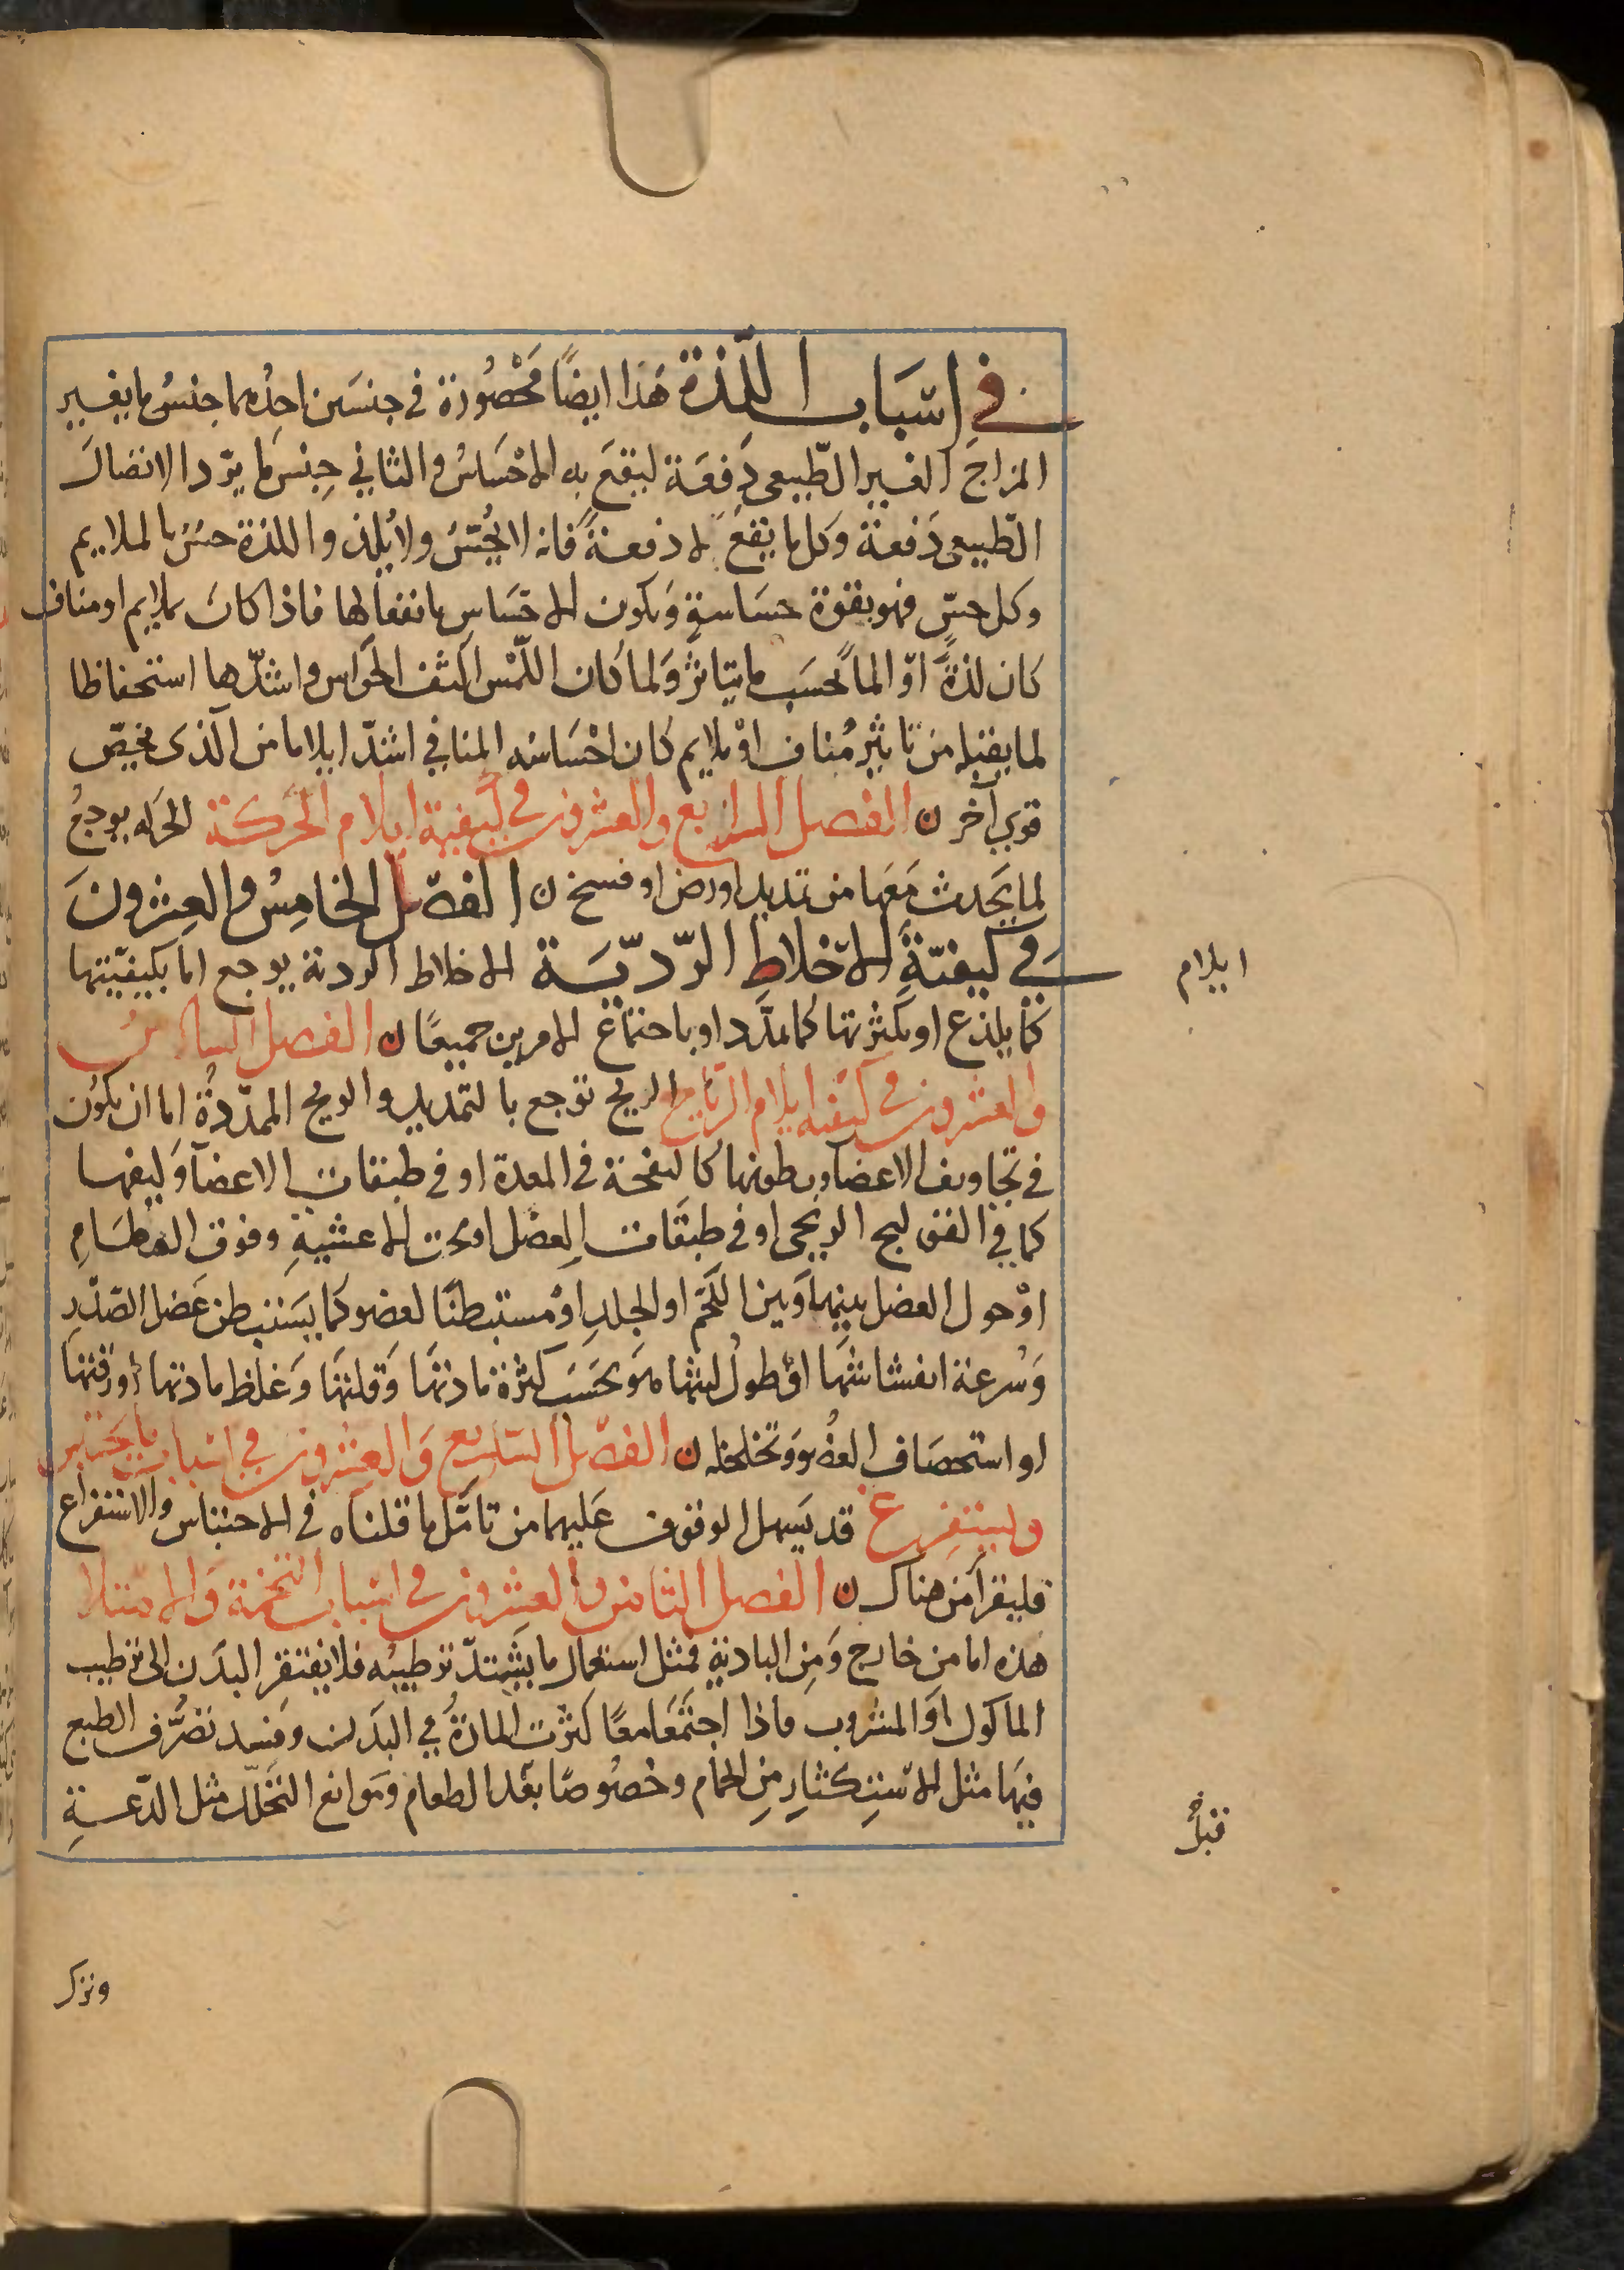 في اسباب اللذة هذا ايضاً محصورة في جنسين احدهما جنس ما يغير
المزاج الغير الطبيعي دفعة ليقع به الاحساس والثاني جنس ما يرد الاتصال
الطبيعي دفعة وكل ما يقع لا دفعةً فانه لا يحس ولا يلذ واللذة حس بالملايم
وكل حس فهو بقوة حساسة ويكون الاحساس بانفعالها فاذا كان بملايم او مناف
كان لذةً او الماً بحسب ما يتاثر ولما كان اللمس اكثف الحواس واشدها استحفاظا
لما يقبله من تاثير مناف او ملايم كان احساسه المنافي اشد ايلاما من الذى يخص
قوى آخر ن الفصل الرابع والعشرون في كيفية ايلام الحركة الحركه يوجع
لما يحدث معها من تمديد او رض او فسخ ن الفصل الخامس والعشرون
في كيفية الاخلاط الرديسة الاخلاط الردئة يوجع اما بكيفيتها
كما يلذع او بكثرتها كما تمدد او باجتماع الامرين جميعًا ن الفصل السادس
والعشرون في كيفيه ايلام الرياح الريح توجع بالتمديد والريح الممددة اما ان يكون
في تجاويف الاعضا وبطونها كالنفخة في المعدة او في طبقات الاعضآ وليفها
كما في القولنج الريحى او في طبقات العضل او تحت الاغشية وفوق العظام
او حول العضل بينها وبين اللحم او الجلد او مستبطنًا لعضو كما يستبطن عضل الصدر
وسرعة انفشاشها او طول لبثها هو بحسب كثرة مادتها وقلتها وغلظ مادتها او رقتها
او استحصاف العضو وتخلخله ن الفصل السابع والعشرون في اسباب ما يحتبس
ويستفرغ قد يسهل الوقوف عليهما من تامل ما قلناه في الاحتباس والاستفراغ
فليقرأ من هناك ن الفصل الثامن والعشرون في اسباب التخمة والامتلا
هذه اما من خارج ومن البادية فمثل استعمال ما يشتد ترطيبه فلا يفتقر البدن الى ترطيب
الماكول او المشروب فاذا اجتمعا معًا كثرت المادة في البدن وفسد تصرف الطبع
فيها مثل الاستكثار من الحمام وخصوصًا بعد الطعام وموانع التحلل مثل الدعة
ايلام
قبل
وترك